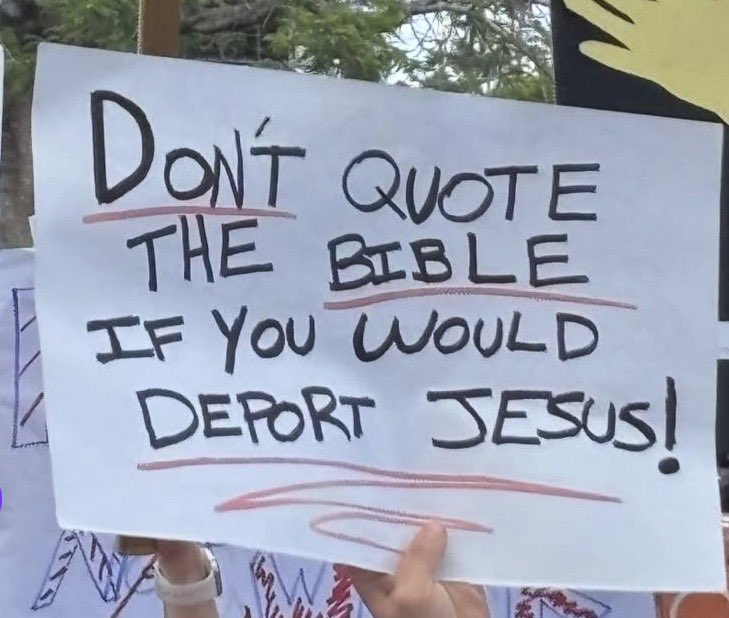 DON'T QUOTE
THE BIBLE
IF YOU WOULD
DEPORT JESUS!